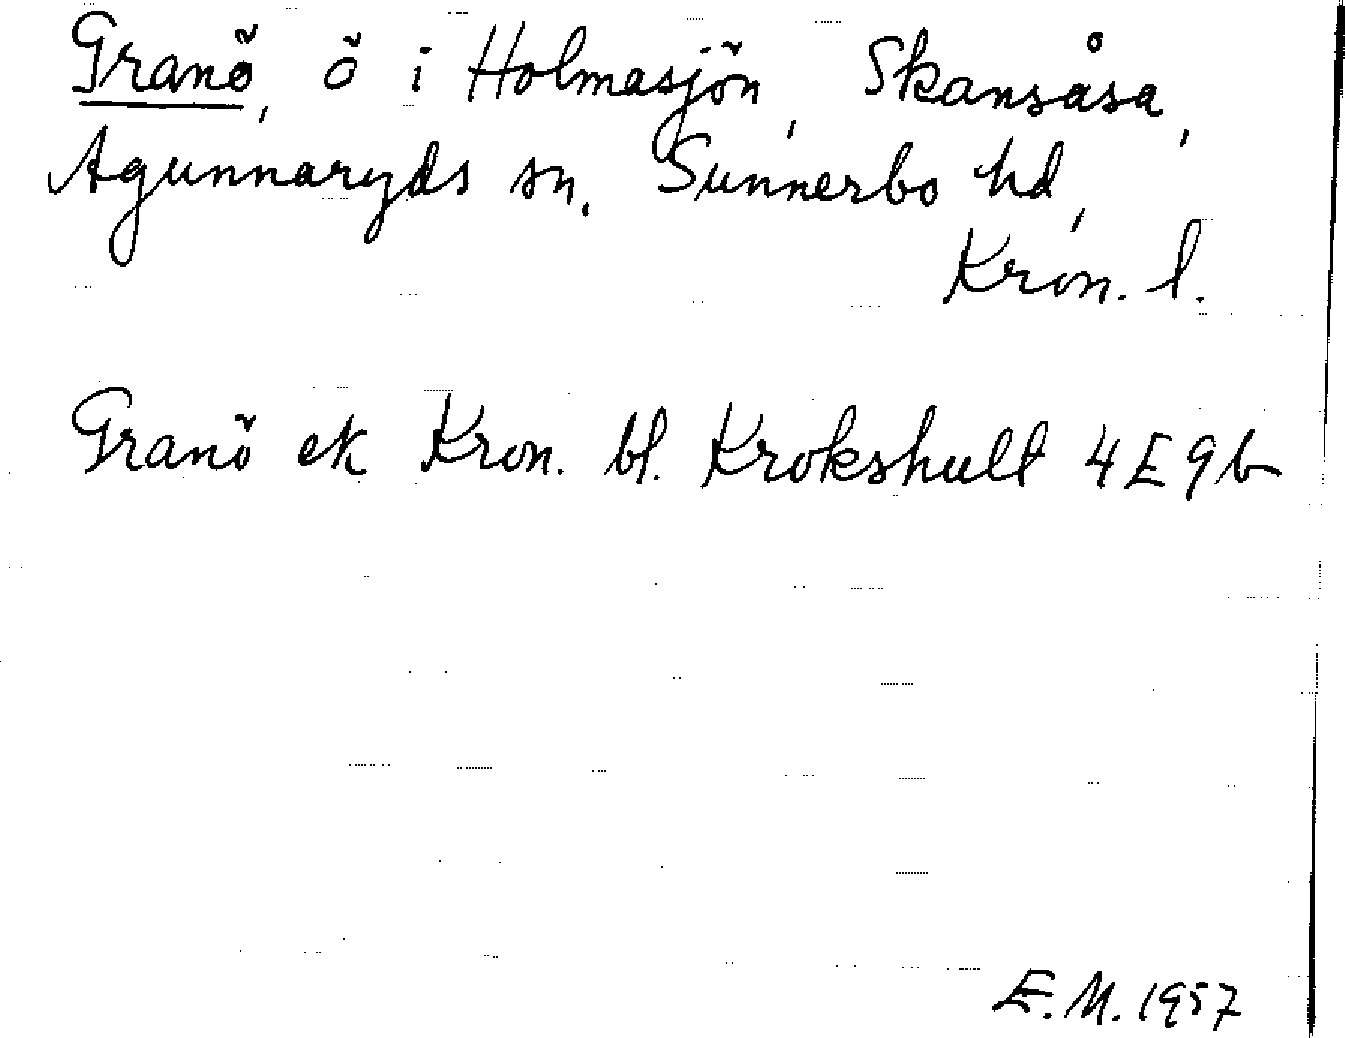 Granö, ö i Holmasjön, Skansåsa,
Agunnaryds sn, Sunnerbo hd,
Kron. l.
Granö ek Kron. bl. Krokshult 4E9b
E.M. 1957